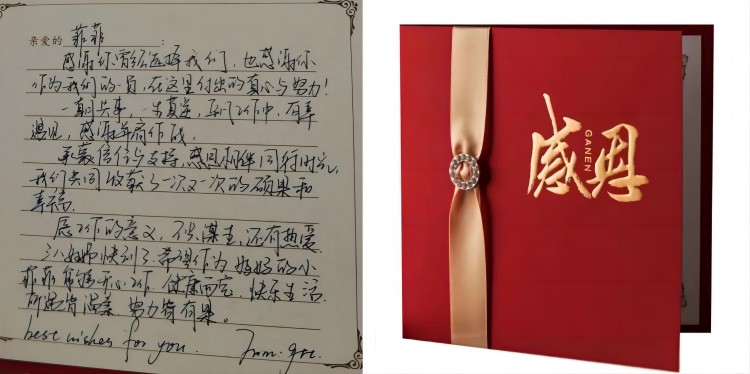 亲爱的 菲菲：
感谢你曾经选择我们，也感谢你
作为我们的一员，在这里付出的真心与努力！
一朝共事，一生真宰，工作中，有幸
遇见，感谢并肩作战。
承蒙信任与支持，感恩相伴同行时光，
我们共同收获了一次又一次的硕果和
幸福。
愿工作的意义，不只谋生，还有热爱
三八妇女节快到了，希望作为妈妈的小
菲菲 能 开心工作，健康而完，快乐生活
所遇皆温柔，努力皆有果。
best wishes for you.
From
感恩
GANEN